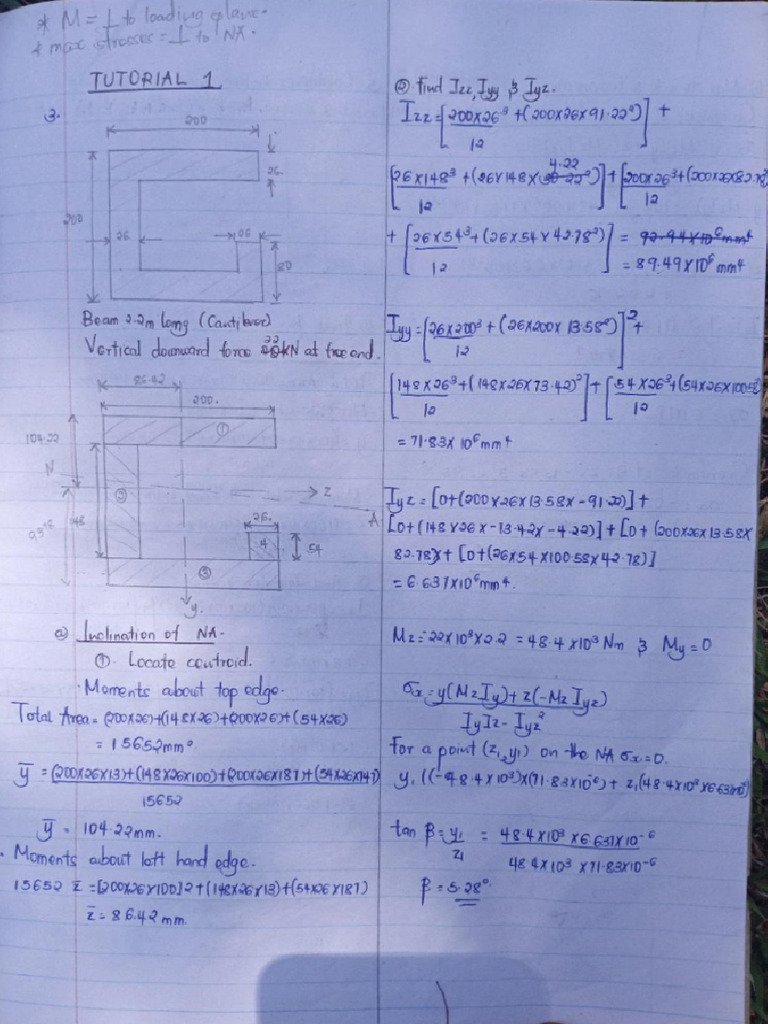 * M = ⊥ to loading plane.
* max stresses = ⊥ to NA.
TUTORIAL 1
3.
200
26
200
26
26
80
Beam 2.2m long (Cantilever)
Vertical downward force 22 kN at free end.
86.42
200.
104.22
①
N
②
z
A
148
26.
4
54
③
y.
a) Inclination of NA.
①. Locate centroid.
· Moments about top edge.
Total Area = (200x26)+(148x26)+(200x26)+(54x26)
= 15652mm²
ȳ = (200x26x13)+(148x26x100)+(200x26x187)+(54x26x147)
15652
ȳ = 104.22mm.
· Moments about left hand edge.
15652 z̄ = [200x26x100]2+(148x26x13)+(54x26x187)
z̄ = 86.42 mm.
② Find Izz, Iyy, & Iyz.
Izz = [200x26³ + (200x26x91.22²)] +
12
4.22
[26x148³ + (26x148x²)] + [200x26³+(200x26x82.78
12 12
+ [26x54³ + (26x54x42.78²)] = 92.94x10⁶mm⁴
12
= 89.49x10⁶mm⁴
Iyy = [26x200³ + (26x200x13.58²)]2+
12
[148x26³+(148x26x73.42)²] + [54x26³+(54x26x100.58²
12 12
= 71.83x10⁶mm⁴
Iyz = [0+(200x26x13.58x-91.22)]+
[0+(148x26x-73.42x-4.22)]+[0+(200x26x13.58x
82.78)]+[0+(26x54x100.58x42.78)]
= 6.637x10⁶mm⁴.
Mz = -22x10³x2.2 = 48.4x10³Nm & My=0
σx = y(MzIy)+z(-MzIyz)
IyIz-Iyz²
For a point (z₁,y₁) on the NA σx=0.
y₁((-48.4x10³)x(71.83x10⁻⁶)+z₁(48.4x10³x6.637x10⁻⁶)
tan β = y₁ = 48.4x10³x6.637x10⁻⁶
z₁ 48.4x10³x71.83x10⁻⁶
β = 5.28°